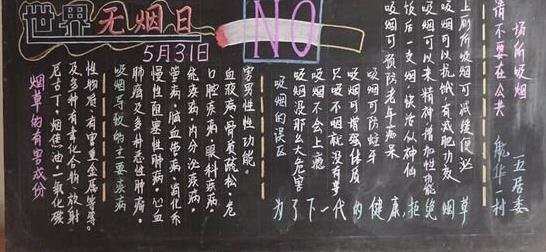 世界无烟日
5月31日
NO
烟草的有害成份
尼古丁、烟焦油、一氧化碳
及多种有毒化合物、放射
性物质、有害重金属等等。
吸烟导致的主要疾病
肺癌及多种恶性肿瘤、
慢性阻塞性肺病、心血
管病、脑血管病、消化系
统疾病、内分泌疾病、
口腔疾病、眼科疾病、
血液病、骨质疏松、危
害男性性功能。
吸烟的误区
吸烟没那么大危害
吸烟不会上瘾
只吸不咽就没有事
吸烟可增强体质
吸烟可防蛀牙
吸烟可预防老年痴呆
饭后一支烟，快活似神仙
吸烟可以来精神增加性功能
吸烟可以抗饿，有减肥功效
上厕所吸烟可减缓便秘
为了下一代的健康，拒绝烟草
请不要在公共
场所吸烟
华一村
五居委